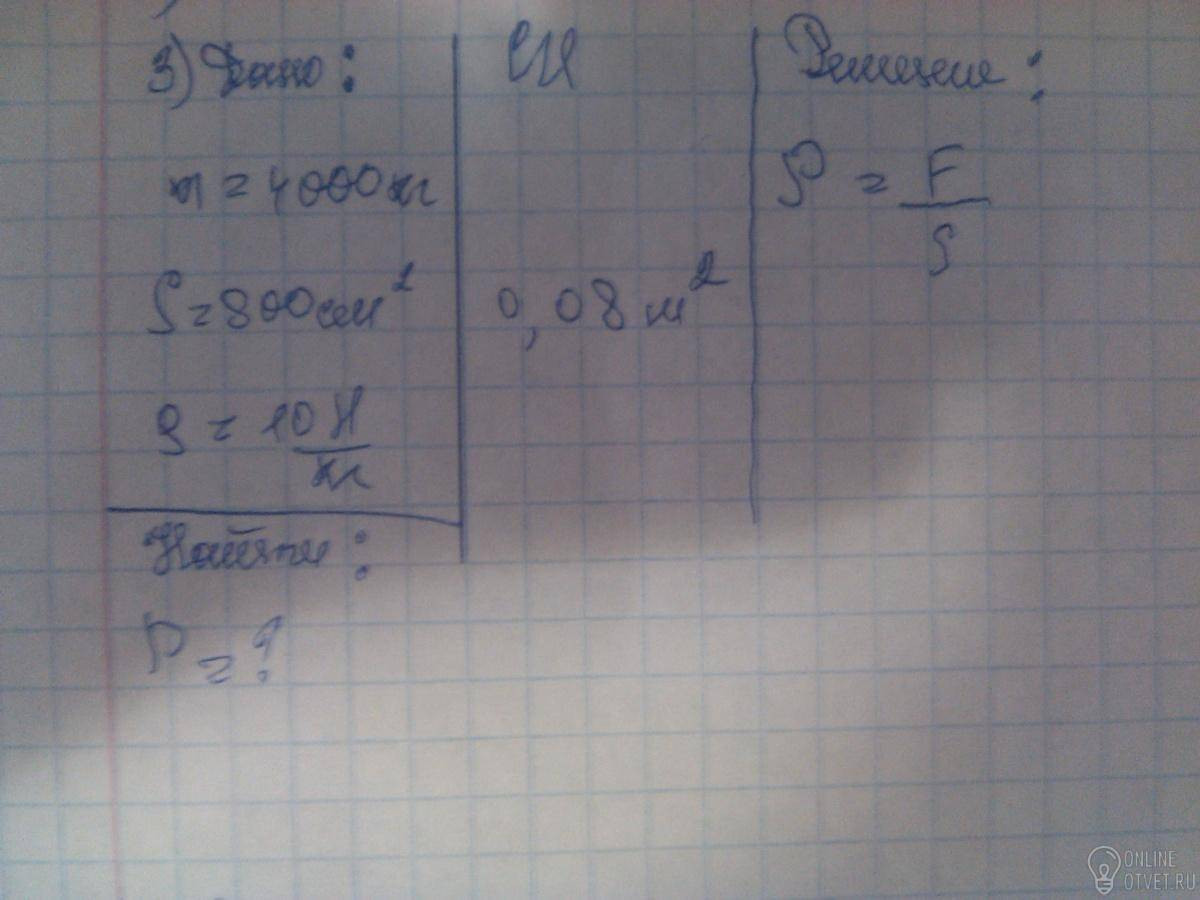 3) Дано:
m = 4000 кг
S = 800 см²
g = 10 Н/кг
Найти:
P = ?
СИ
0,08 м²
Решение:
P = F/S
ONLINE
OTVET.RU